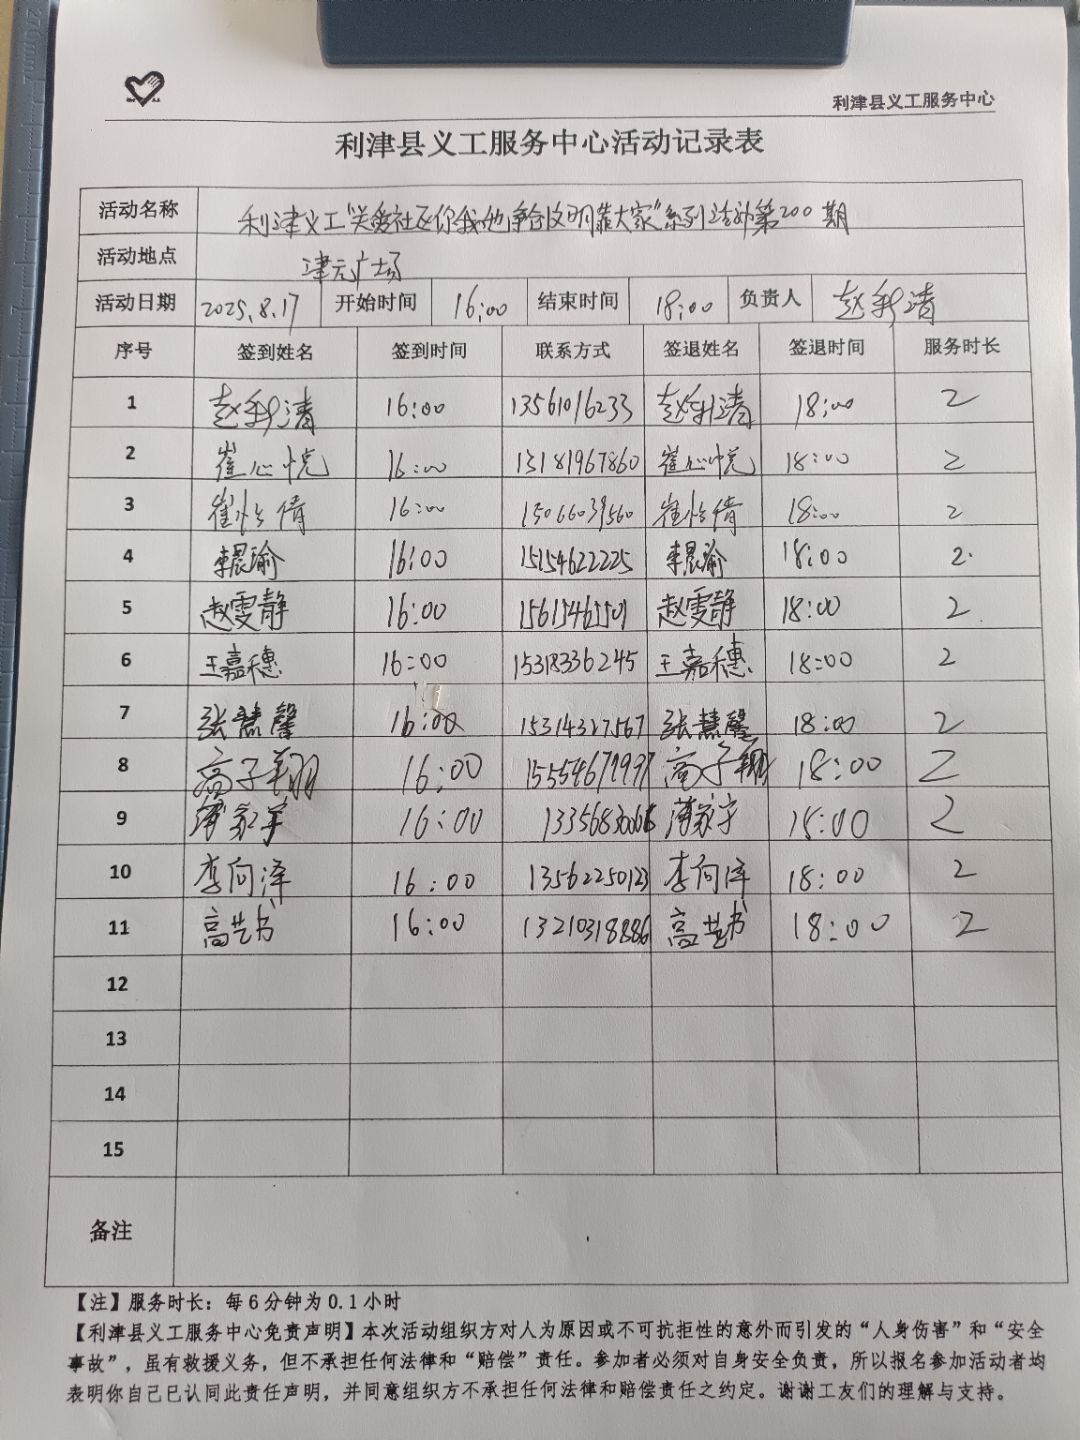 利津县义工服务中心
利津县义工服务中心活动记录表
活动名称 利津义工"关爱社区你我他争创文明靠大家"系列活动第200期
活动地点 津元广场
活动日期 2025.8.17 开始时间 16:00 结束时间 18:00 负责人 赵利清
序号 签到姓名 签到时间 联系方式 签退姓名 签退时间 服务时长
1 赵利清 16:00 13561016233 赵利清 18:00 2
2 崔心悦 16:00 13181967860 崔心悦 18:00 2
3 崔怡倩 16:00 15066039560 崔怡倩 18:00 2
4 李晨瑜 16:00 15154622225 李晨瑜 18:00 2
5 赵雯静 16:00 赵雯静 18:00 2
6 王嘉穗 16:00 15318336245 王嘉穗 18:00 2
7 张慧馨 16:00 15314327567 张慧馨 18:00 2
8 高子翔 16:00 高子翔 18:00 2
9 薄家宇 16:00 薄家宇 18:00 2
10 李向泽 16:00 13562250123 李向泽 18:00 2
11 高艺书 16:00 13210318886 高艺书 18:00 2
12
13
14
15
备注
【注】服务时长：每6分钟为0.1小时
【利津县义工服务中心免责声明】本次活动组织方对人为原因或不可抗拒性的意外而引发的“人身伤害”和“安全
事故”，虽有救援义务，但不承担任何法律和“赔偿”责任。参加者必须对自身安全负责，所以报名参加活动者均
表明你自己已认同此责任声明，并同意组织方不承担任何法律和赔偿责任之约定。谢谢工友们的理解与支持。